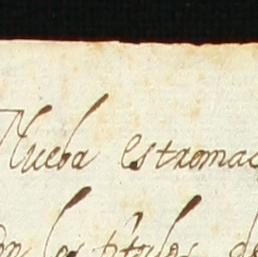 Nueba estromac
on los titolos de